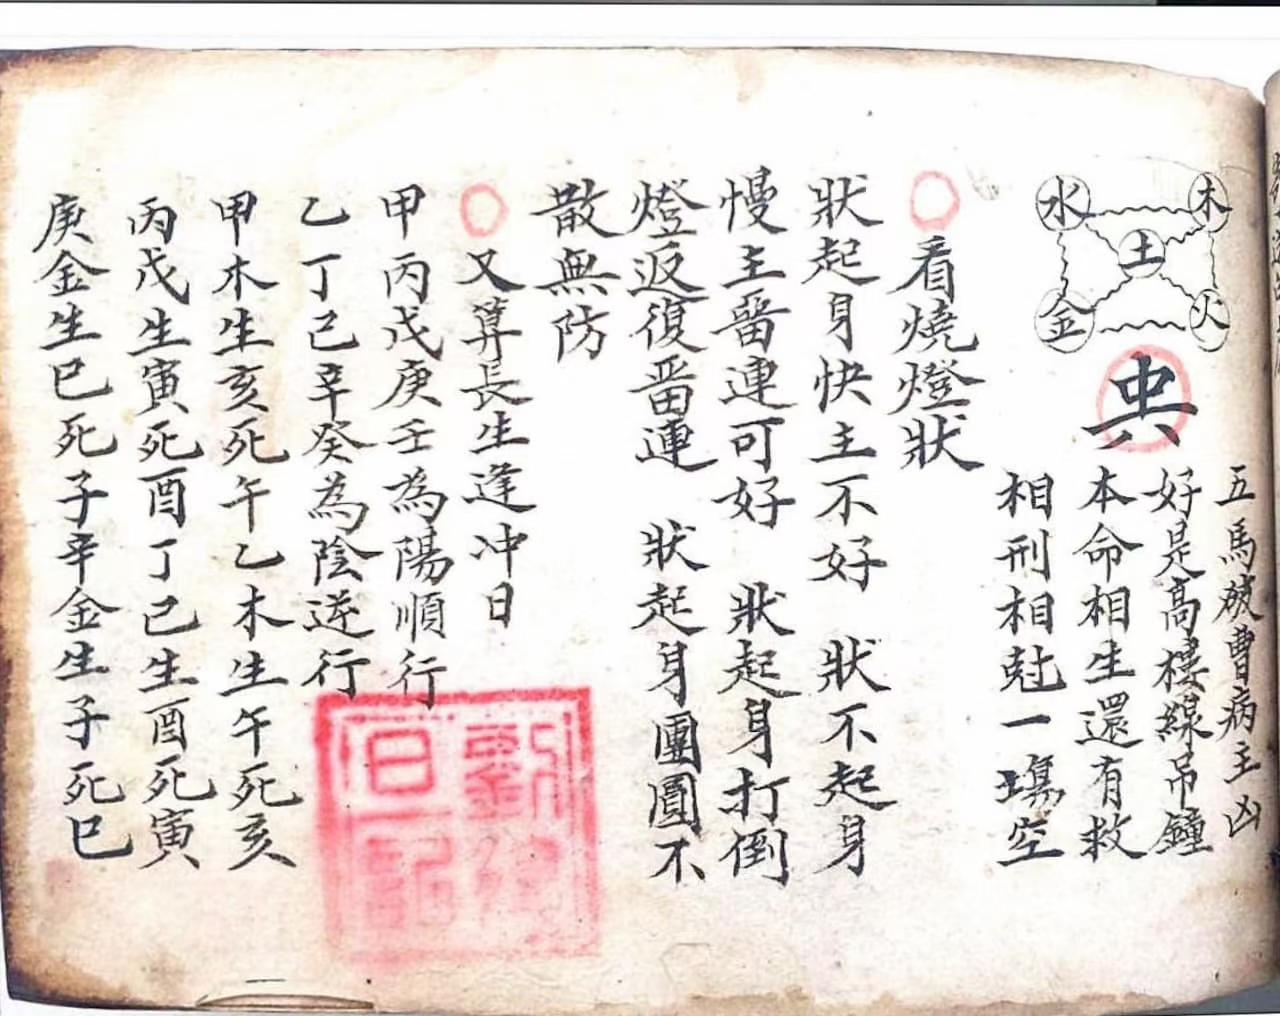 水 木
土
金 火
五馬破曹病主凶
好是高樓線吊鐘
本命相生還有救
相刑相尅一塲空
看燒燈狀
狀起身快主不好 狀不起身
慢主畨連可好 狀起身打倒
燈返復畨連 狀起身團圓不
散無防
又算長生逢冲日
甲丙戊庚壬為陽順行
乙丁己辛癸為陰逆行
甲木生亥死午乙木生午死亥
丙戊生寅死酉丁己生酉死寅
庚金生巳死子辛金生子死巳
劉